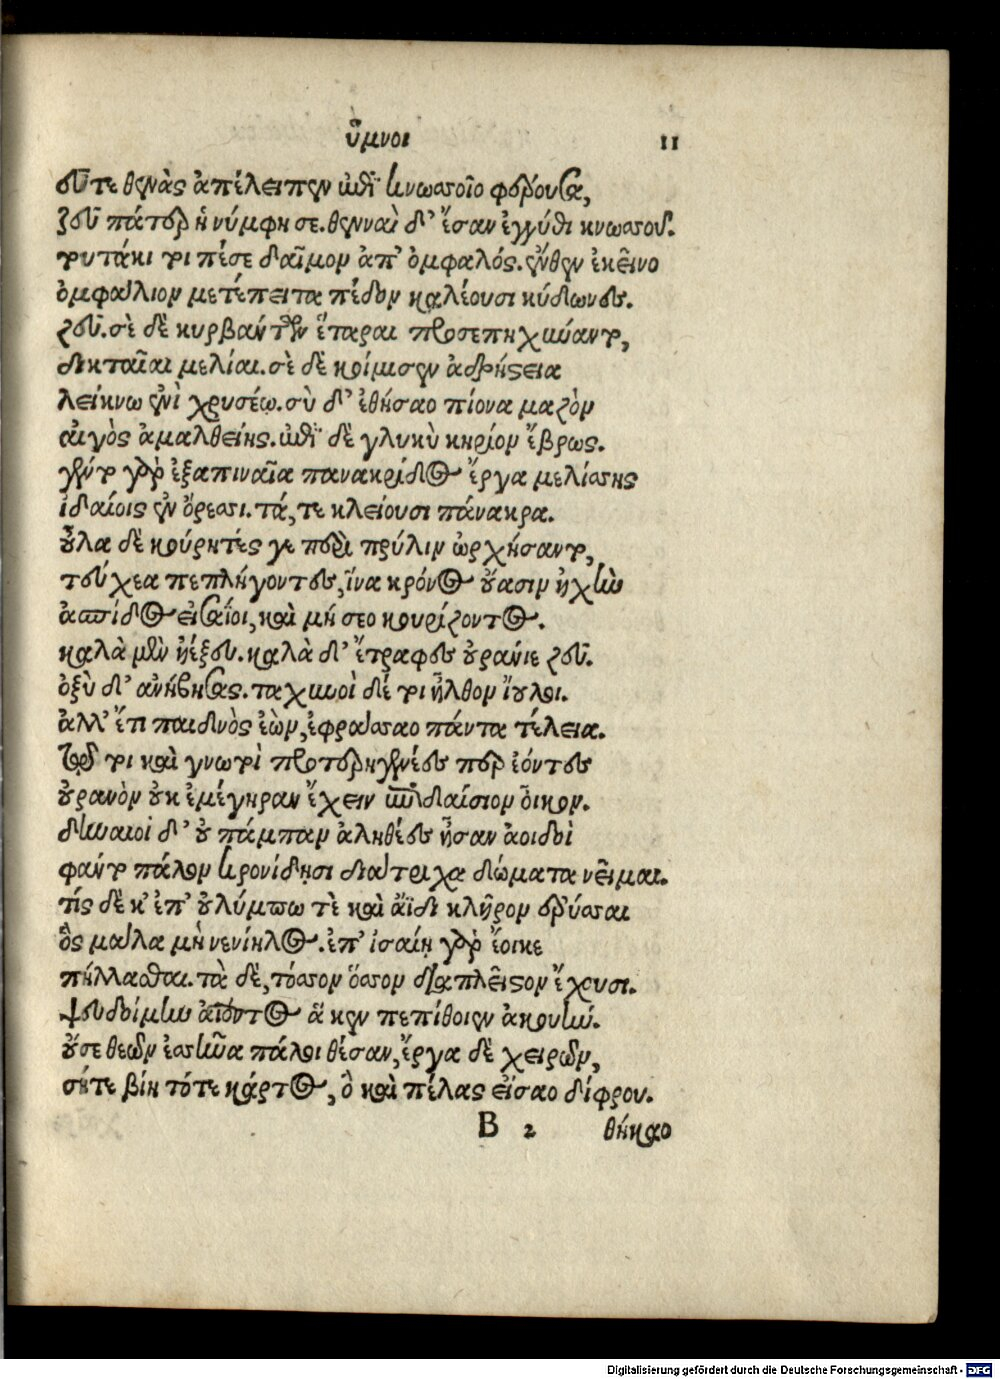 ὕμνοι 11
εὖτε θενὰς ἀπέλειπεν ἐπὶ κνωσσοῖο φέρουσα,
ζεῦ πάτερ ἡ νύμφη σε. θενναὶ δ' ἔσαν ἐγγύθι κνωσσοῦ.
τυτάκι τοι πέσε δαῖμον ἀπ' ὀμφαλός. ἔνθεν ἐκεῖνο
ὀμφάλιον μετέπειτα πέδον καλέουσι κύδωνες.
ζεῦ. σὲ δὲ κυρβάντων ἕταραι προσεπηχύναντο,
δικταῖαι μελίαι. σὲ δὲ κοίμισεν ἀδρήστεια
λείκνῳ ἐνὶ χρυσέῳ. σὺ δ' ἐθήσαο πίονα μαζὸν
αἰγὸς ἀμαλθείης. ἐπὶ δὲ γλυκὺ κηρίον ἔβρως.
γέντο γὰρ ἐξαπιναῖα πανακρίδος ἔργα μελίσσης
ἰδαίοις ἐν ὄρεσσι. τά, τε κλείουσι πάνακρα.
οὖλα δὲ κούρητές γε περὶ πρύλιν ὠρχήσαντο,
τεύχεα πεπλήγοντες, ἵνα κρόνος οὔασιν ἠχὴν
ἀσπίδος εἰσαΐοι, καὶ μή σεο κουρίζοντος.
καλὰ μὲν ἠέξευ. καλὰ δ' ἔτραφες οὐράνιε ζεῦ.
ὀξὺ δ' ἀνήβησας. ταχινοὶ δέ τοι ἦλθον ἴουλοι.
ἀλλ' ἔτι παιδνὸς ἐὼν, ἐφράσσαο πάντα τέλεια.
τῷ τοι καὶ γνωτοὶ προτερηγενέες περ ἐόντες
οὐρανὸν οὐκ ἐμέγηραν ἔχειν ἐπιδαίσιον οἶκον.
δηναιοὶ δ' οὐ πάμπαν ἀληθέες ἦσαν ἀοιδοὶ
φάντο πάλον κρονίδῃσι διάτριχα δώματα νεῖμαι.
τίς δὲ κ' ἐπ' οὐλύμπω τὲ καὶ ἄϊδι κλῆρον ἐρύσσαι
ὃς μάλα μὴ νενίηλος. ἐπ' ἰσαίῃ γὰρ ἔοικε
πήλασθαι. τὰ δὲ, τόσσον ὅσσον διὰ πλεῖστον ἔχουσι.
ψευδοίμην ἀΐοντος ἅ κεν πεπίθοιεν ἀκουήν.
οὔ σε θεῶν ἐσσῆνα πάλοι θέσαν, ἔργα δὲ χειρῶν,
σή τε βίη τότε κάρτος, ὃ καὶ πέλας εἵσαο δίφρου.
B 2 θήκαο
Digitalisierung gefördert durch die Deutsche Forschungsgemeinschaft - DFG